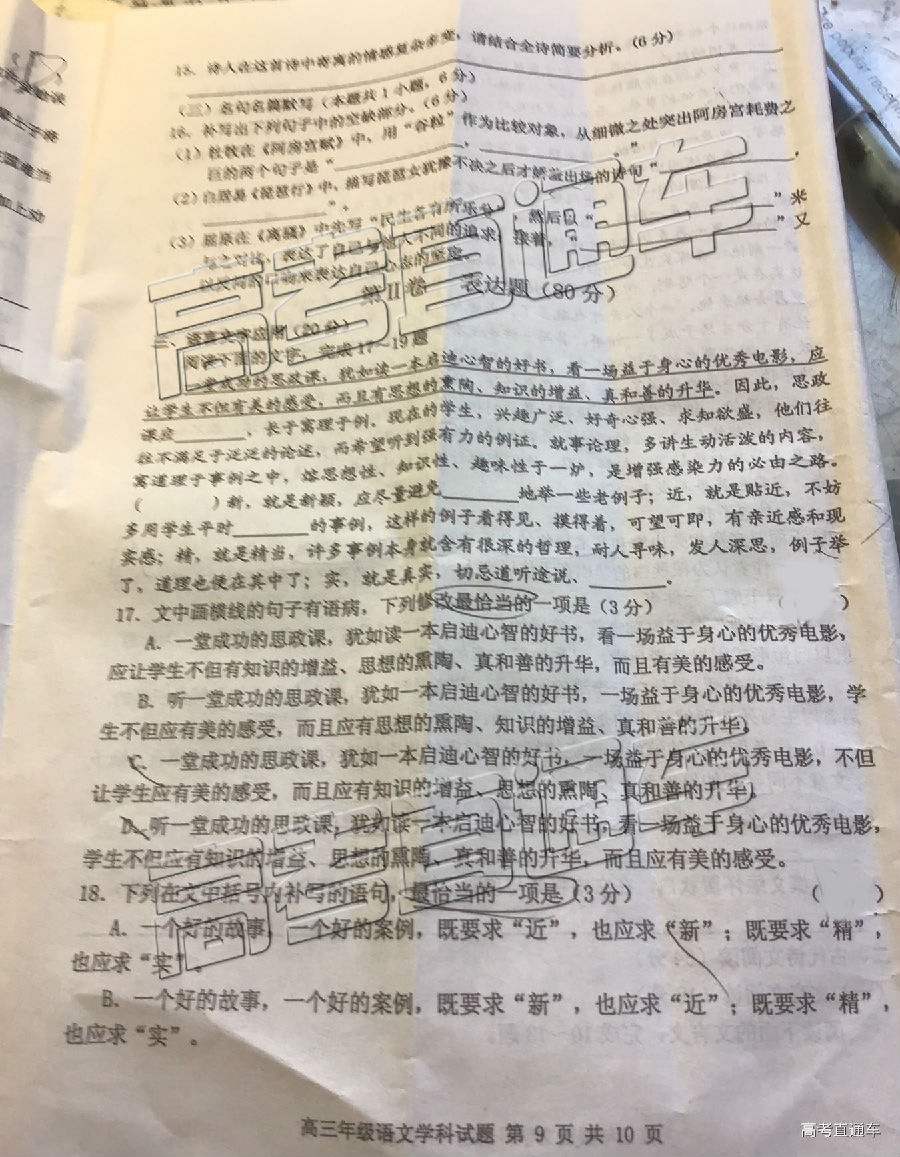 15. 诗人在这首诗中寄寓的情感复杂多变，请结合全诗简要分析。（6分）
（三）名句名篇默写（本题共1小题，6分）
16. 补写出下列句子中的空缺部分。（6分）
（1）杜牧在《阿房宫赋》中，用“谷粒”作为比较对象，从细微之处突出阿房宫耗费之
巨的两个句子是“________，________。”
（2）白居易《琵琶行》中，描写琵琶女犹豫不决之后才娇羞出场的诗句“________，
________”。
（3）屈原在《离骚》中先写“民生各有所乐兮”，然后以“________”来
与之对比，表达了自己与他人不同的追求；接着，“________”又
以反问的口吻来表达自己心志的坚定。
第Ⅱ卷 表达题（80分）
三、语言文字应用（20分）
阅读下面的文字，完成17～19题
一堂成功的思政课，犹如读一本启迪心智的好书，看一场益于身心的优秀电影，应
让学生不但有美的感受，而且有思想的熏陶、知识的增益、真和善的升华。因此，思政
课应________、长于寓理于例。现在的学生，兴趣广泛、好奇心强、求知欲盛，他们往
往不满足于泛泛的论述，而希望听到强有力的例证。就事论理，多讲生动活泼的内容，
寓道理于事例之中，熔思想性、知识性、趣味性于一炉，是增强感染力的必由之路。
（ ）新，就是新颖，应尽量避免________地举一些老例子；近，就是贴近，不妨
多用学生平时________的事例，这样的例子看得见、摸得着，可望可即，有亲近感和现
实感；精，就是精当，许多事例本身就含有很深的哲理，耐人寻味，发人深思，例子举
了，道理也便在其中了；实，就是真实，切忌道听途说、________。
17. 文中画横线的句子有语病，下列修改最恰当的一项是（3分） （ ）
A. 一堂成功的思政课，犹如读一本启迪心智的好书，看一场益于身心的优秀电影，
应让学生不但有知识的增益、思想的熏陶、真和善的升华，而且有美的感受。
B. 听一堂成功的思政课，犹如一本启迪心智的好书，一场益于身心的优秀电影，学
生不但应有美的感受，而且应有思想的熏陶、知识的增益、真和善的升华。
C. 一堂成功的思政课，犹如一本启迪心智的好书，一场益于身心的优秀电影，不但
让学生应有美的感受，而且应有知识的增益、思想的熏陶、真和善的升华。
D. 听一堂成功的思政课，犹如读一本启迪心智的好书，看一场益于身心的优秀电影，
学生不但应有知识的增益、思想的熏陶、真和善的升华，而且应有美的感受。
18. 下列在文中括号内补写的语句，最恰当的一项是（3分） （ ）
A. 一个好的故事，一个好的案例，既要求“近”，也应求“新”；既要求“精”，
也应求“实”。
B. 一个好的故事，一个好的案例，既要求“新”，也应求“近”；既要求“精”，
也应求“实”。
高三年级语文学科试题 第 9 页 共 10 页
高考直通车
高考直通车
高考直通车